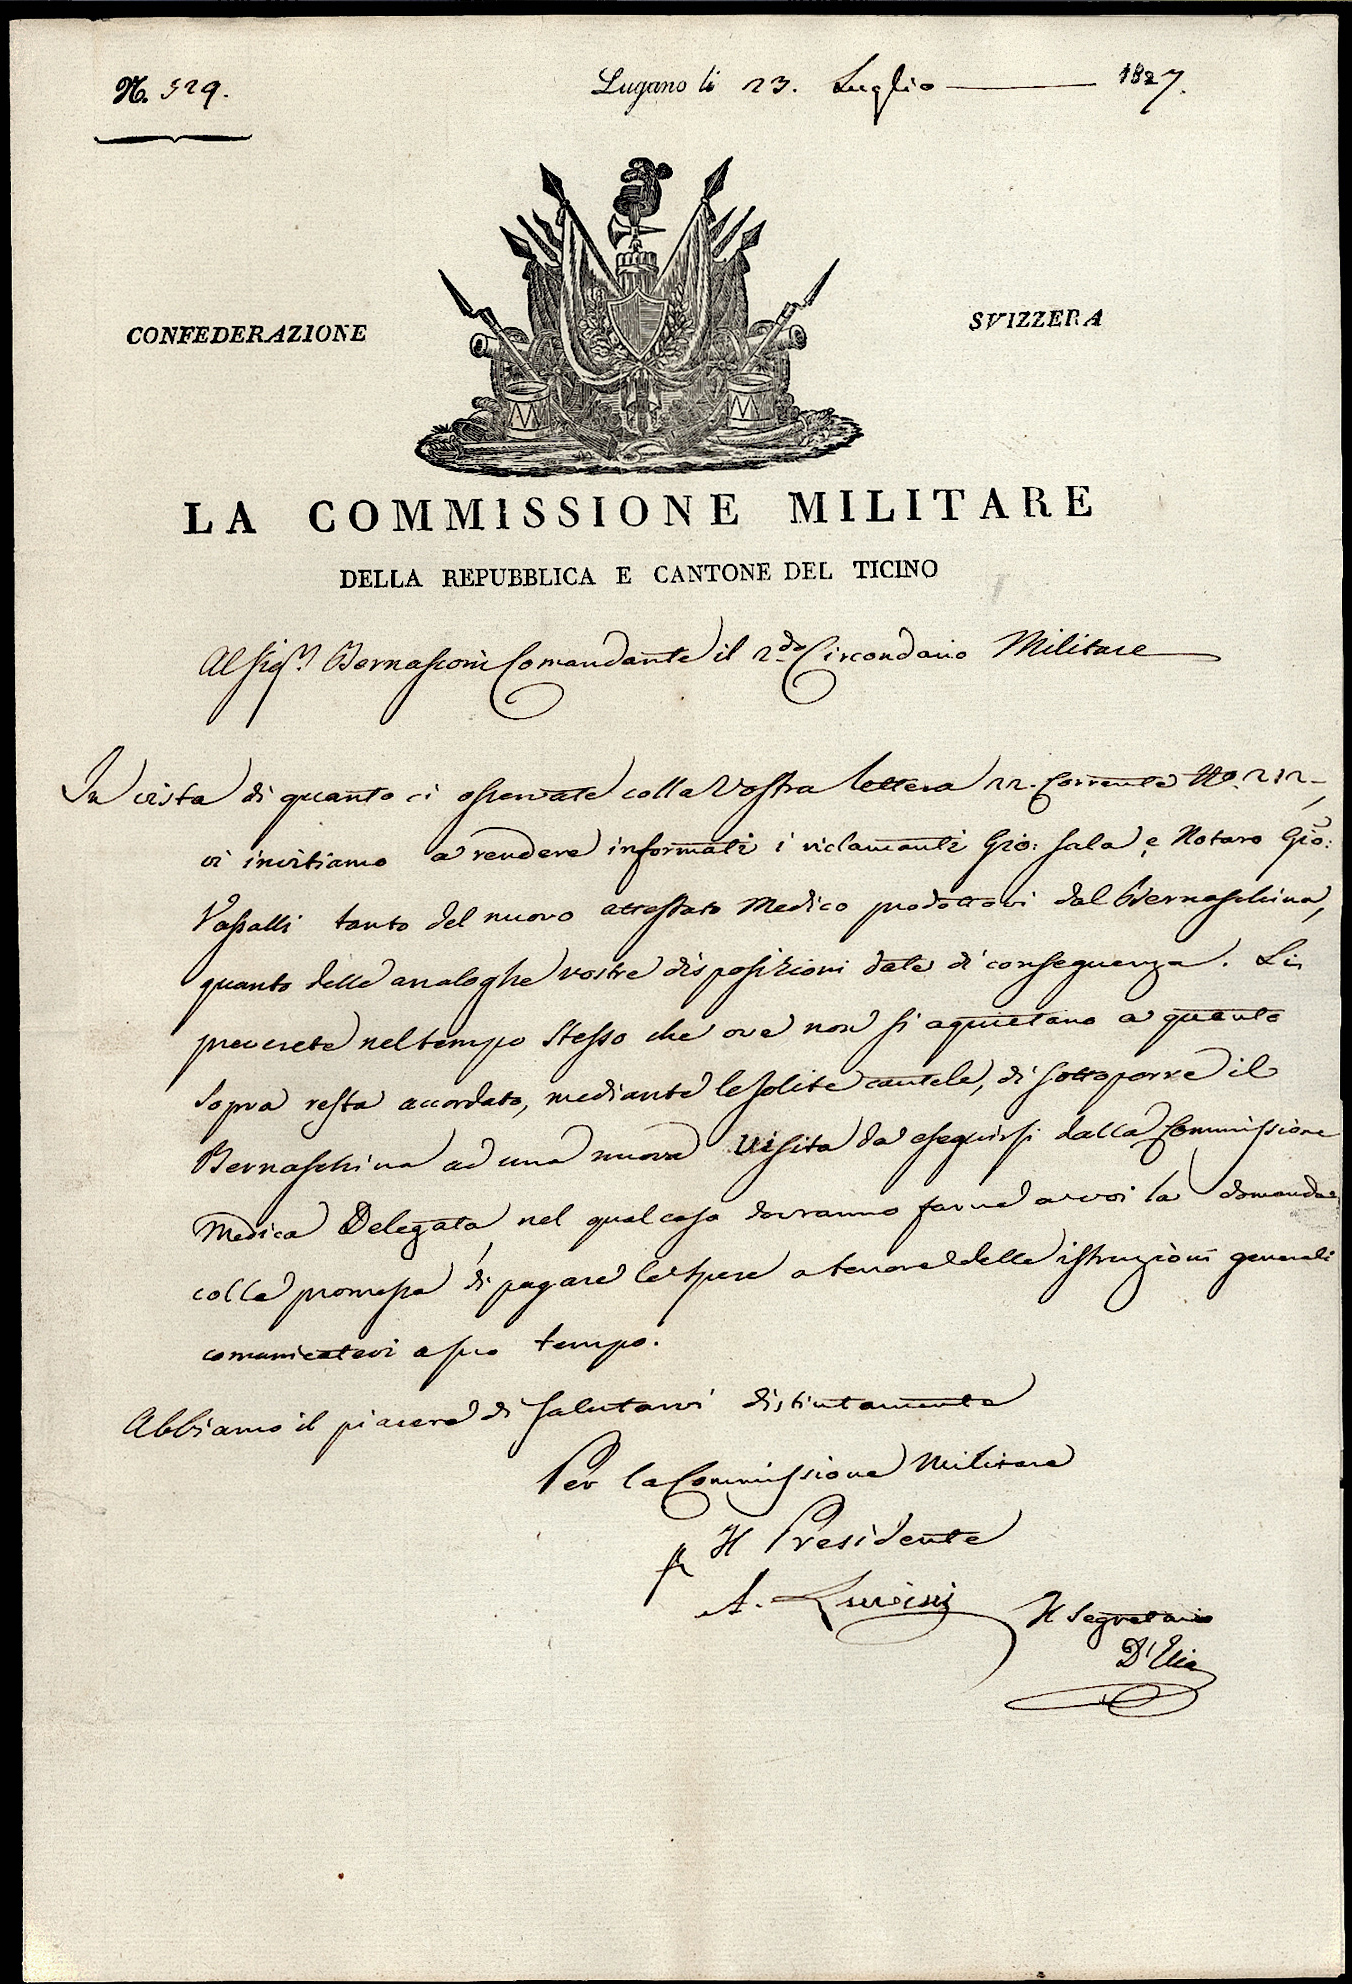 N. 529.
Lugano li 23. Luglio 1827.
CONFEDERAZIONE SVIZZERA
LA COMMISSIONE MILITARE
DELLA REPUBBLICA E CANTONE DEL TICINO
Al Sigr. Bernasconi Comandante il 2.do Circondario Militare
In vista di quanto ci osservate colla Vostra lettera 22. Corrente No. 212
vi invitiamo a rendere informati i riclamanti Gio: Sala e Notaro Gio:
Vassalli tanto del nuovo attestato Medico prodottovi dal Bernaschina,
quanto delle analoghe vostre disposizioni date di conseguenza. Li
preverrete nel tempo stesso che ove non si aquietano a quanto
sopra resta accordato, mediante le solite cautele, di sottoporre il
Bernaschina ad una nuova visita da eseguirsi dalla Commissione
Medica Delegata, nel qual caso dovranno farne a voi la domanda
colla promessa di pagare le spese a tenore delle istruzioni generali
comunicatevi a suo tempo.
Abbiamo il piacere di salutarvi distintamente
Per la Commissione Militare
p Il Presidente
A. Luvini
Il Segretario
D'Elia